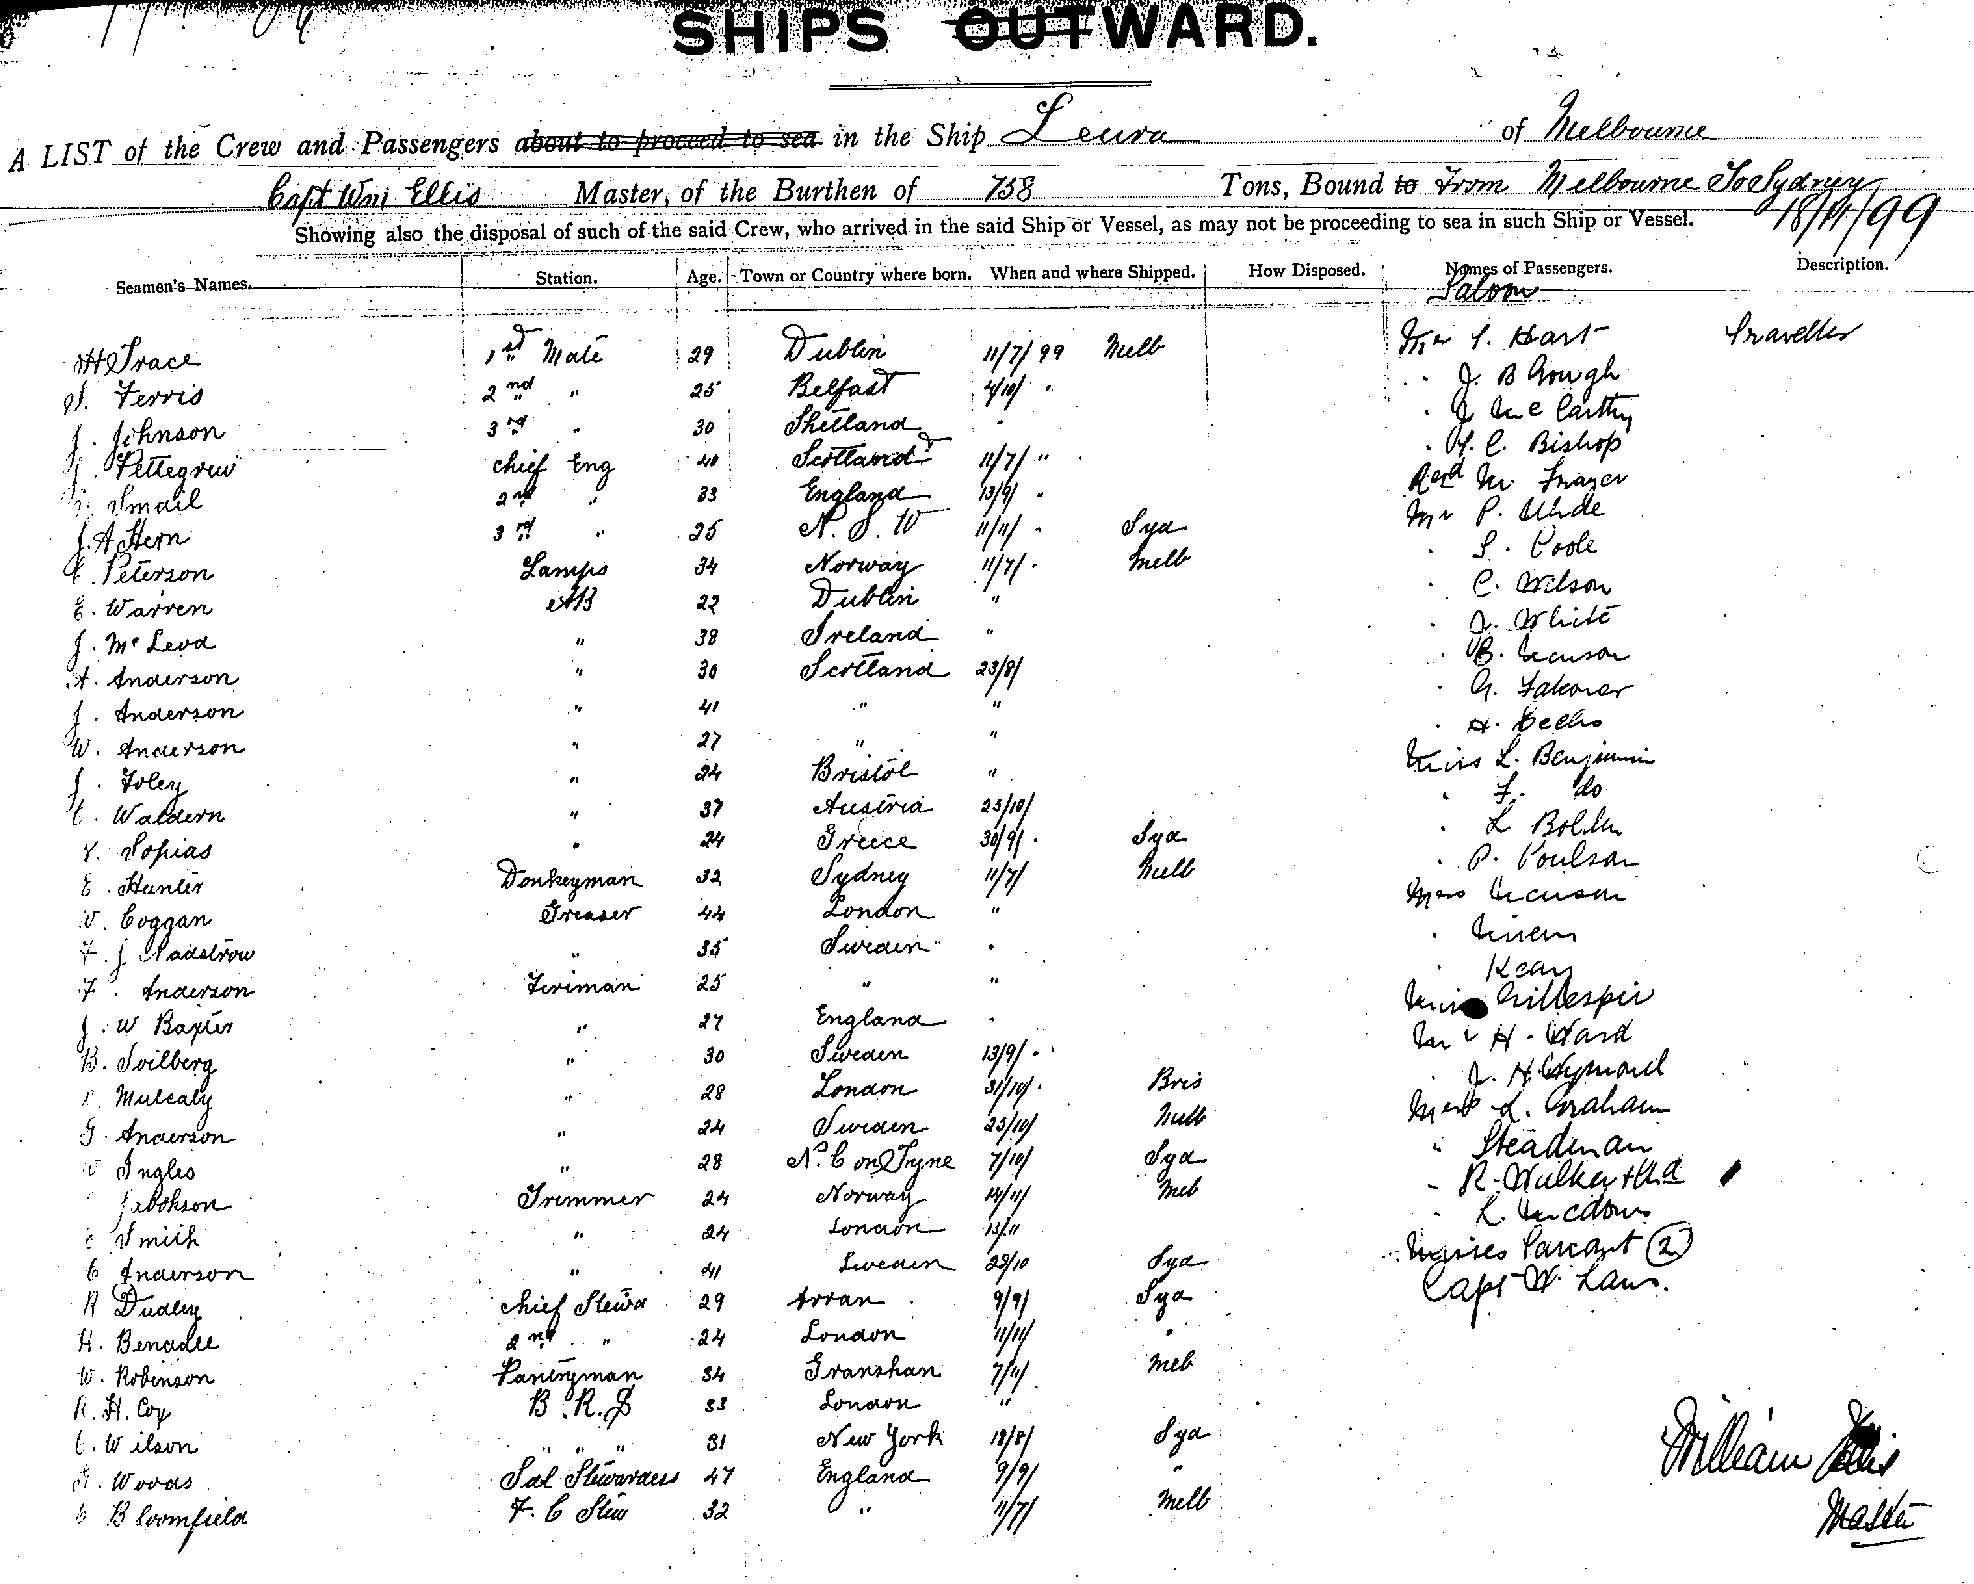 SHIPS OUTWARD.
A LIST of the Crew and Passengers about to proceed to sea in the Ship Leura of Melbourne
Capt Wm Ellis Master, of the Burthen of 758 Tons, Bound to From Melbourne To Sydney
18/11/99
Showing also the disposal of such of the said Crew, who arrived in the said Ship or Vessel, as may not be proceeding to sea in such Ship or Vessel.
Seamen's Names. Station. Age. Town or Country where born. When and where Shipped. How Disposed. Names of Passengers. Description.
Saloon
H Grace 1st Mate 29 Dublin 11/7/99 Melb Mr S. Hart Traveller
Ferris 2nd " 25 Belfast 4/10/ " J. B Gough
J. Johnson 3rd " 30 Shetland " J McCarthy
J. Pettegrew chief Eng 40 Scotland 11/7/ " H. C. Bishop
Smail 2nd " 33 England 13/9/ " Revd M. Frazer
J. A Hern 3rd " 25 N. S. W 11/11/ " Syd Mr P.
C. Peterson Lamps 34 Norway 11/7/ " Melb " S. Poole
E. Warren AB 22 Dublin " " C. Wilson
J. McLeod " 38 Ireland " " J. White
A. Anderson " 30 Scotland 23/8/ "
J. Anderson " 41 " " " G.
W. Anderson " 27 " " " H.
J. Foley " 24 Bristol " Miss L. Benjamin
C. Waldern " 37 Austria 23/10/ " F. do
V. Sopias " 24 Greece 30/9/ " Syd " L
E. Hunter Donkeyman 32 Sydney 11/7/ Melb " P. Poulson
W. Coggan Greaser 44 London " Mrs
F. J " 35 Sweden " "
F. Anderson Fireman 25 " " " Keary
J. W Baxter " 27 England " Miss Gillespie
B. Soilberg " 30 Sweden 13/9/ " Mr H. Ward
Mulcahy " 28 London 31/10/ " Bris " J. H.
G. Anderson " 24 Sweden 23/10/ Melb L. Graham
W Ingles " 28 N. C on Tyne 7/10/ Syd " Steadman
Jabokson Trimmer 24 Norway 14/11/ Melb " R. Walker
C Smith " 24 London 13/11 " L.
C Anderson " 41 Sweden 28/10 Syd Misses (2)
R Dudley chief Stewd 29 Arran 9/9/ Syd Capt W. Laws.
H. Benadee 2nd " 24 London 11/11/ "
W. Robinson Pantryman 34 Granshan 7/11/ Melb
R. H. Cox B. R. S 33 London "
C. Wilson " " " 31 New York 18/8/ Syd
Woods Sal Stewardess 47 England 9/9/ "
C Bloomfield F. C Stew 32 " 11/7/ Melb
William Ellis
Master